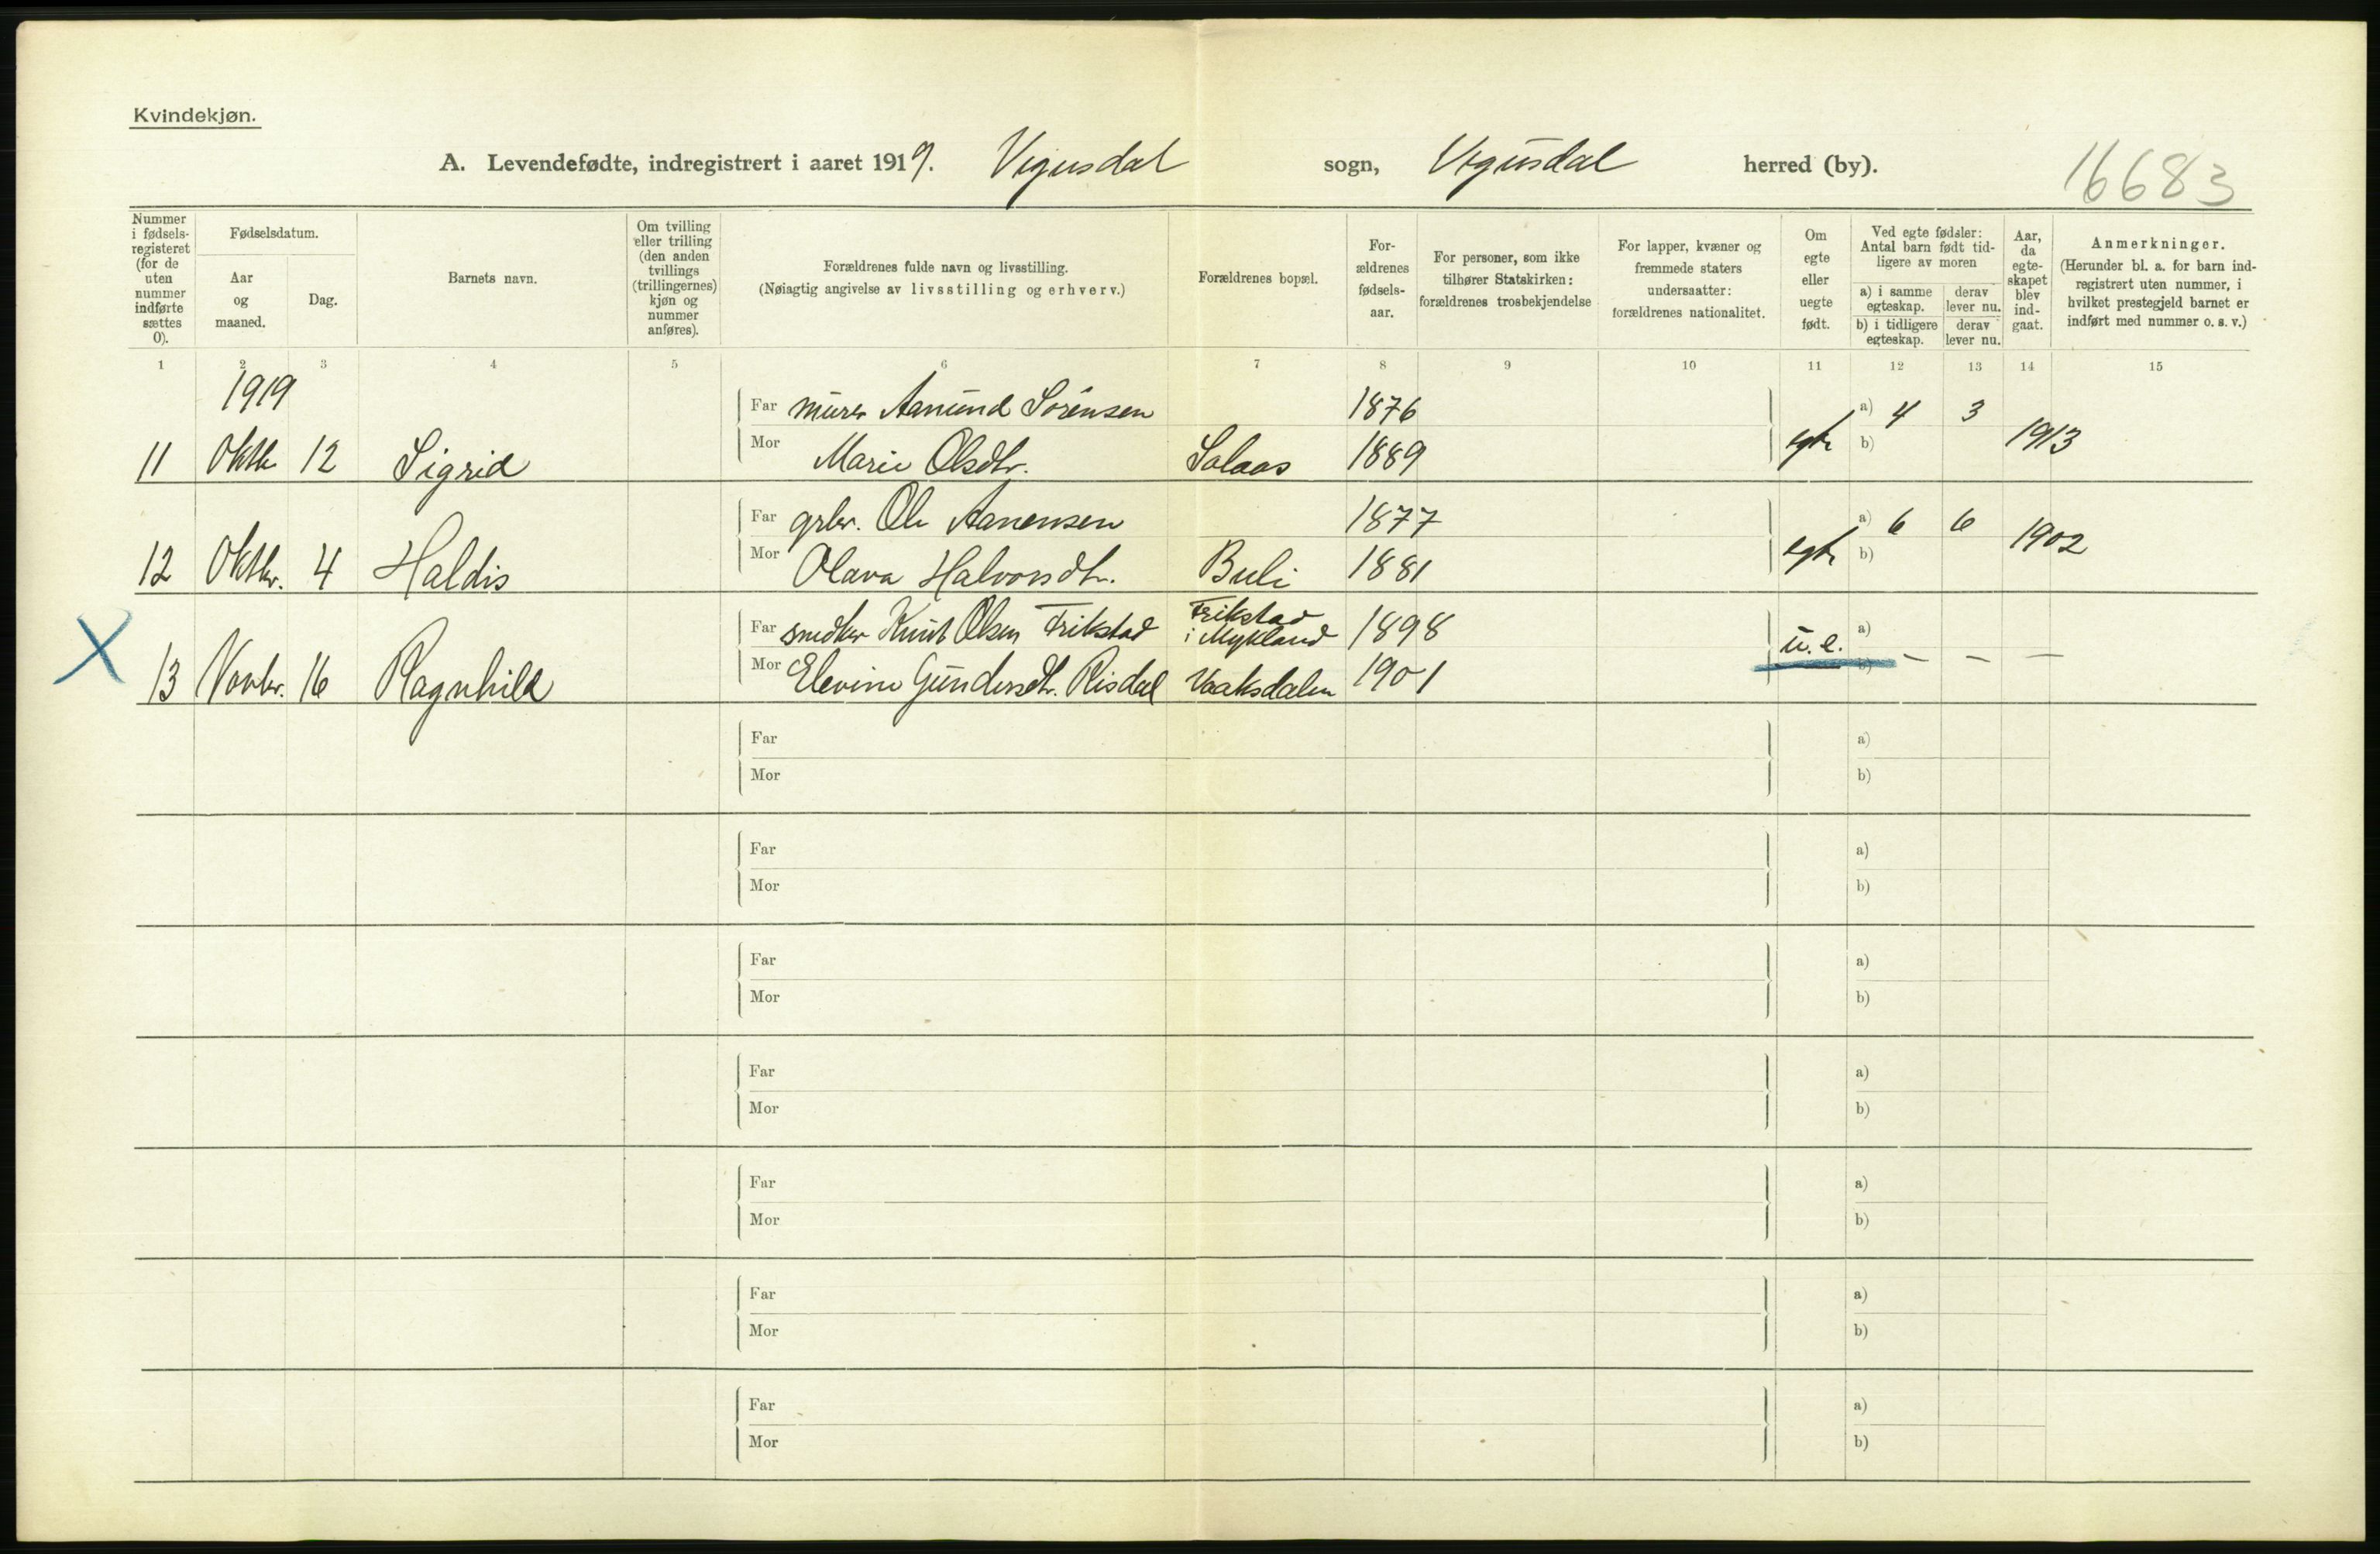 Kvindekjøn.
A. Levendefødte, indregistrert i aaret 1919. Vegusdal sogn, Vegusdal herred (by). 16683
Nummer i fødsels-registeret (for de uten nummer indførte sættes 0).
Fødselsdatum.
Aar og maaned.
Dag.
Barnets navn.
Om tvilling eller trilling (den anden tvillings (trillingernes) kjøn og nummer anføres).
Forældrenes fulde navn og livsstilling.
(Nøiagtig angivelse av livsstilling og erhverv.)
Forældrenes bopæl.
For-ældrenes fødsels-aar.
For personer, som ikke tilhører Statskirken: forældrenes trosbekjendelse
For lapper, kvæner og fremmede staters undersaatter: forældrenes nationalitet.
Om egte eller uegte født.
Ved egte fødsler: Antal barn født tid-ligere av moren
a) i samme egteskap.
derav lever nu.
b) i tidligere egteskap.
derav lever nu.
Aar, da egte-skapet blev ind-gaat.
Anmerkninger.
(Herunder bl. a. for barn ind-registrert uten nummer, i hvilket prestegjeld barnet er indført med nummer o. s. v.)
1 2 3 4 5 6 7 8 9 10 11 12 13 14 15
1919
Far murer Aanund Sørensen 1876 a) 4 3
11 Oktbr 12 Sigrid Mor Marie Olsdtr. Solaas 1889 egte b) 1913
Far grbr. Ole Aanensen 1877 a) 6 6
12 Oktbr. 4 Haldis Mor Olava Halvorsdtr. Buli 1881 egte b) 1902
Far snedker Knut Olsen Frikstad Frikstad i Mykland 1898 a)
X 13 Novbr. 16 Ragnhild Mor Elevine Gundersdtr. Risdal Vaaksdalen 1901 u.e. b) — — —
Far a)
Mor b)
Far a)
Mor b)
Far a)
Mor b)
Far a)
Mor b)
Far a)
Mor b)
Far a)
Mor b)
Far a)
Mor b)